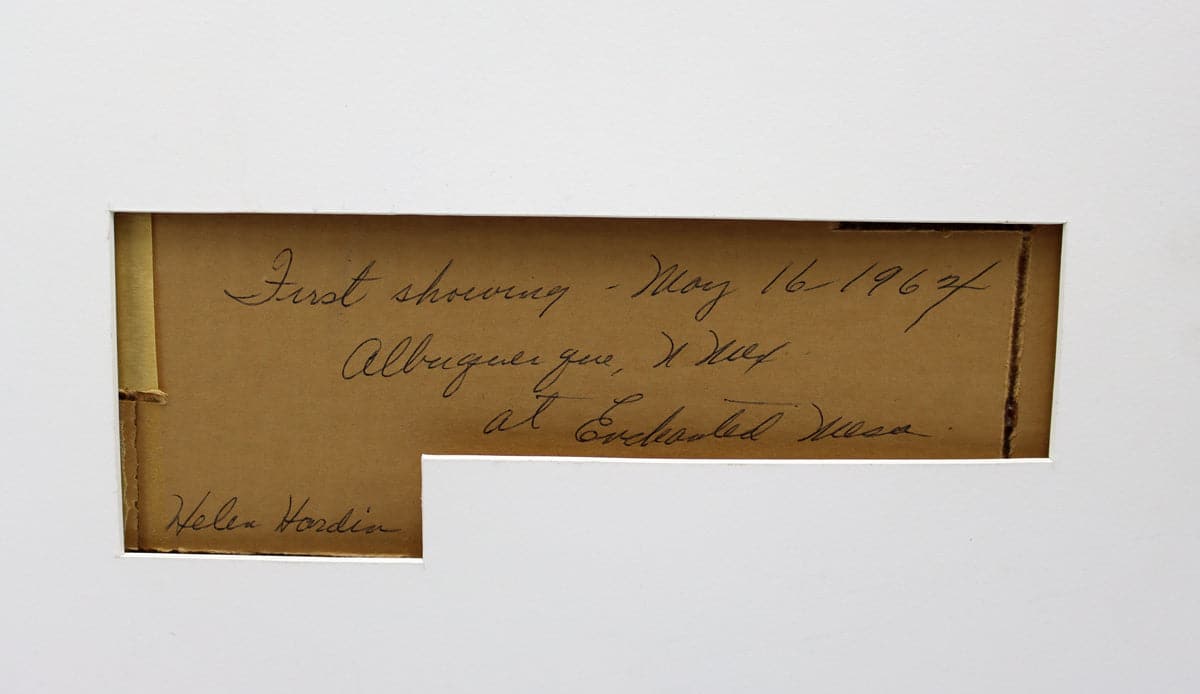 First showing - May 16-1964
Albuquerque, N Mex.
at Enchanted Mesa.
Helen Hardin